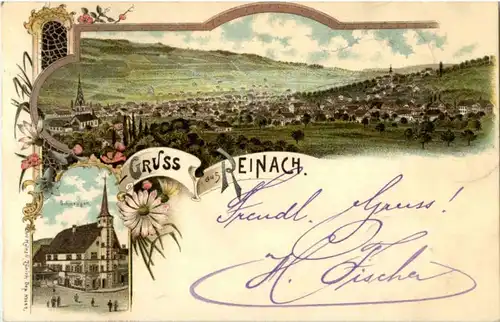 GRUSS
aus
REINACH.
Freundl. Gruss!
H. Fischer